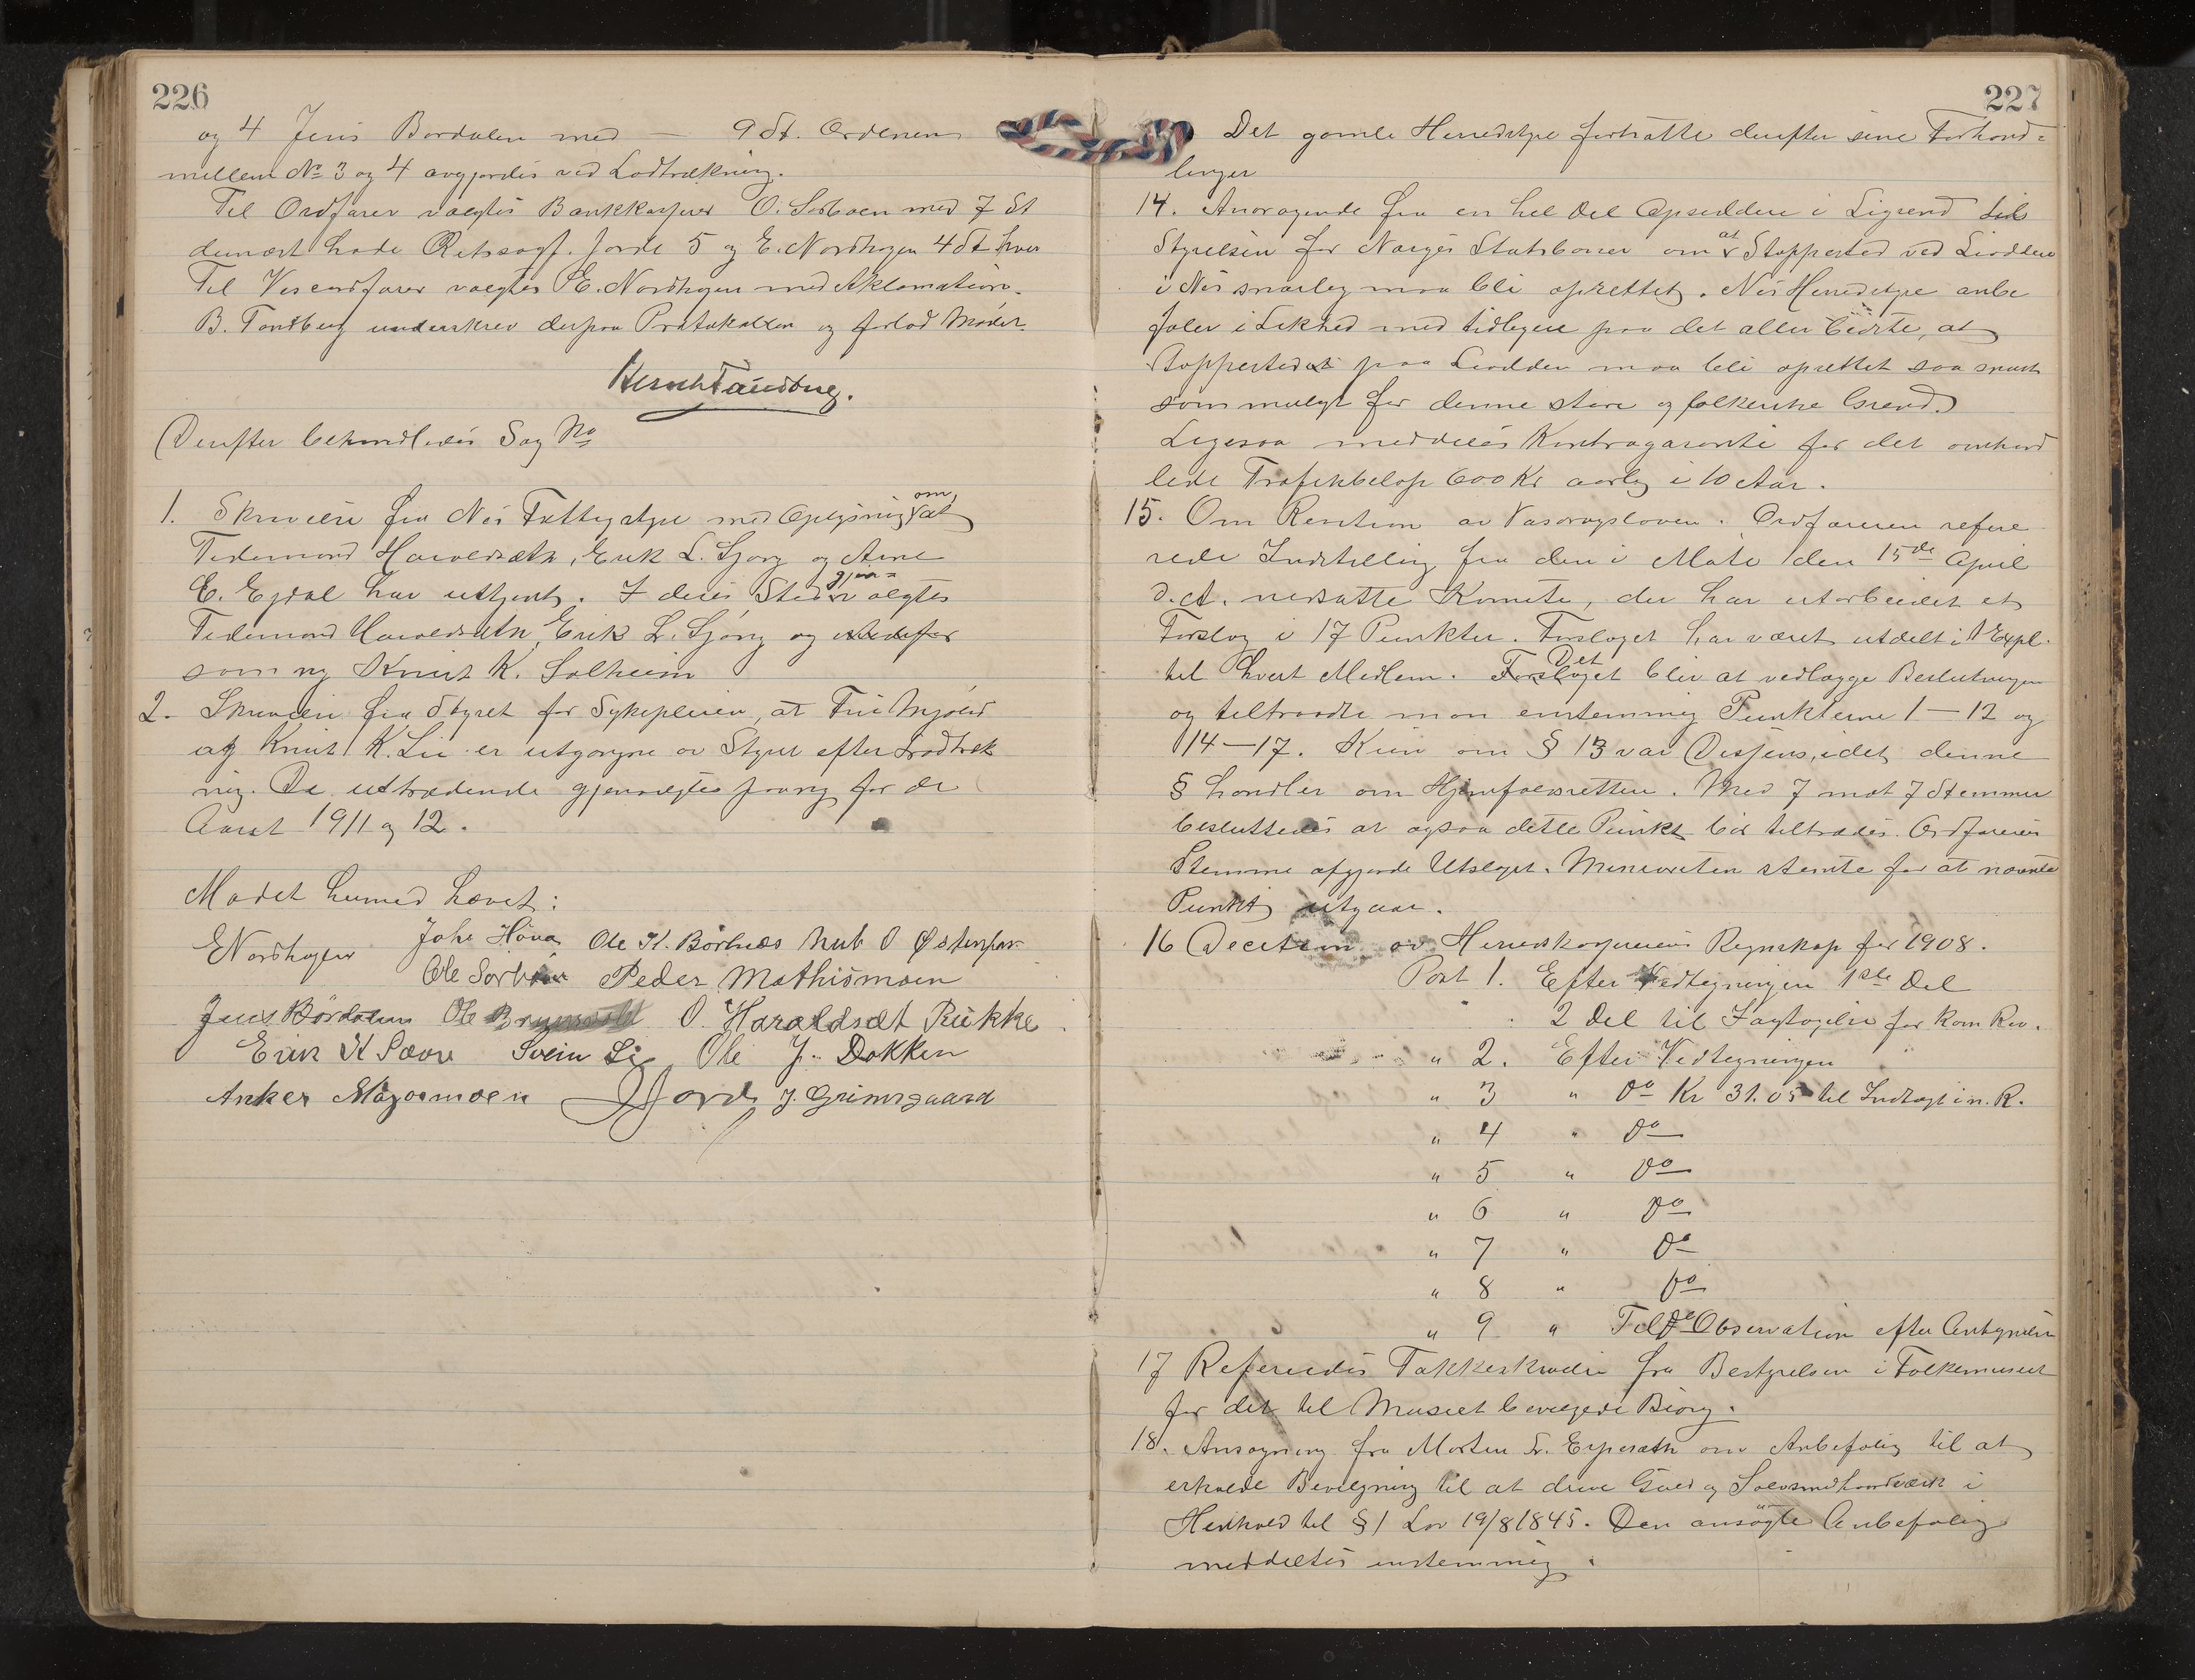 226
og 4 Jens Bordalen med — 9 St. Ordenen
mellem No 3 og 4 avgjordes ved Lodtrækning.
Til Ordfører valgtes Bankkasserer O. Sorbøen med 7 St
dernæst hade Retssagf. Jorde 5 og E. Nordhagen 4 St hver
Til Viseordfører valgtes E. Nordhagen med Aklamation.
B. Tandberg underskrev derpaa Protokollen og forlod Mødet.
Tandberg.
Derefter behandledes Sag No
1. Skrivelse fra Nes Fattigstyre med Oplysning om at
Tidemand Haraldsæth, Erik L. Sjong og Arne
E. Ejdal har uttjent. I deres Sted gjenvalgtes
Tidemand Haraldsæth, Erik L. Sjong og
som ny Knut K. Solheim
2. Skrivelse fra Styret for Sykepleien, at Fru Mjøld
og Knut K. Lie er utgangne av Styret efter Lodtræk
ning. De uttrædende gjenvalgtes paany for de
Aaret 1911 og 12.
Mødet hermed hævet:
E Nordhagen John Høva Ole K. Børtnes Knut O Østenfor
Ole Sorbøen Peder Mathismoen
Jens Bordalen Ole O. Haraldsæt Rukke
Erik K Sævre Svein Li Ole J. Dokken
Anker Magormoen Jorde J. Grimsgaard
227
Det gamle Herredstyre fortsatte derefter sine Forhand-
linger
14. Andragende fra en hel Del Opsiddere i Ligrend til
Styrelsen for Norges Statsbaner om at Stoppested ved Liodden
i Nes snarlig maa bli oprettet. Nes Herredstyre anbe
faler i Likhed med tidligere paa det aller bedste, at
Stoppestedet paa Liodden maa bli oprettet saa snart
som muligt for denne store og folkerike Grend.
Ligesaa meddeles Kontragaranti for det omhand
lede Trafikbeløp 600 Kr aarlig i 10 Aar.
15. Om Revition av Vasdragsloven. Ordføreren refere
rede Indstilling fra den i Møte den 15de April
d.A. nedsatte Komite, der har utarbeidet et
Forslag i 17 Punkter. Forslaget har været utdelt i 1 Expl.
til hvert Medlem. Det Forslaget blir at vedlægge Beslutningen
og tiltraadte man enstemmig Punkterne 1—12 og
14—17. Kun om § 13 var Dissens, idet denne
§ handler om Hjemfaldsretten. Med 7 mot 7 Stemmer
besluttedes at ogsaa dette Punkt blir tiltrædes. Ordførerens
Stemme afgjorde Utslaget. Minoriteten stemte for at nævnte
Punkt utgaar.
16 Decition av Herredskassererens Regnskap for 1908.
Post 1. Efter Vedtegningen 1ste Del
2 Del til Iagttagelse for Kom Rev.
" 2. Efter Vedtegningen
" 3 " Do Kr 31.05 til Indtægt i n. R.
" 4 " Do
" 5 " Do
" 6 " Do
" 7 " Do
" 8 " Do
" 9 " Til Do Observation efter Antegnelsen
17 Refereredes Takkeskrivelse fra Bestyrelsen i Folkemuseet
for det til Museet bevilgede Bidrag.
18. Ansøgning fra Morten Sr. Espesæth om Anbefaling til at
erholde Bevilgning til at drive Guld og Sølvsmedhandværk i
Henhold til § 1 Lov 19/8 1845. Den ansøgte Anbefaling
meddeltes enstemmig.